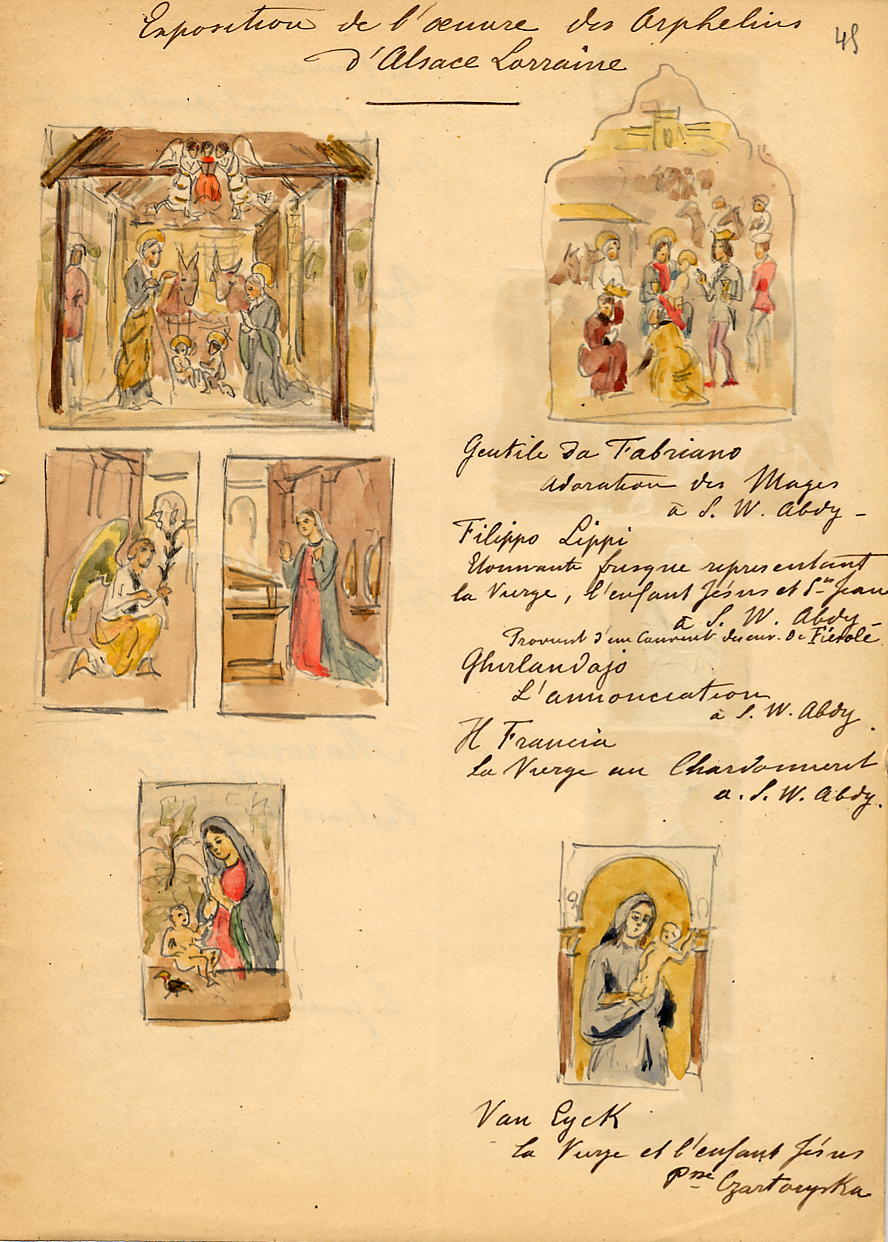 Exposition de l'œuvre des Orphelins
d'Alsace Lorraine
45
Gentile da Fabriano
Adoration des Mages
à S. W. Abdy -
Filippo Lippi
Etonnante fresque representant
la Vierge, l'enfant Jésus et St Jean
à S. W. Abdy -
Provient d'un Couvent des env. de Fiésole
Ghirlandajo
L'annonciation
à S. W. Abdy.
Francia
La Vierge au Chardonneret
a. S. W. Abdy.
Van Eyck
La Vierge et l'enfant Jésus
Psse Czartoryska